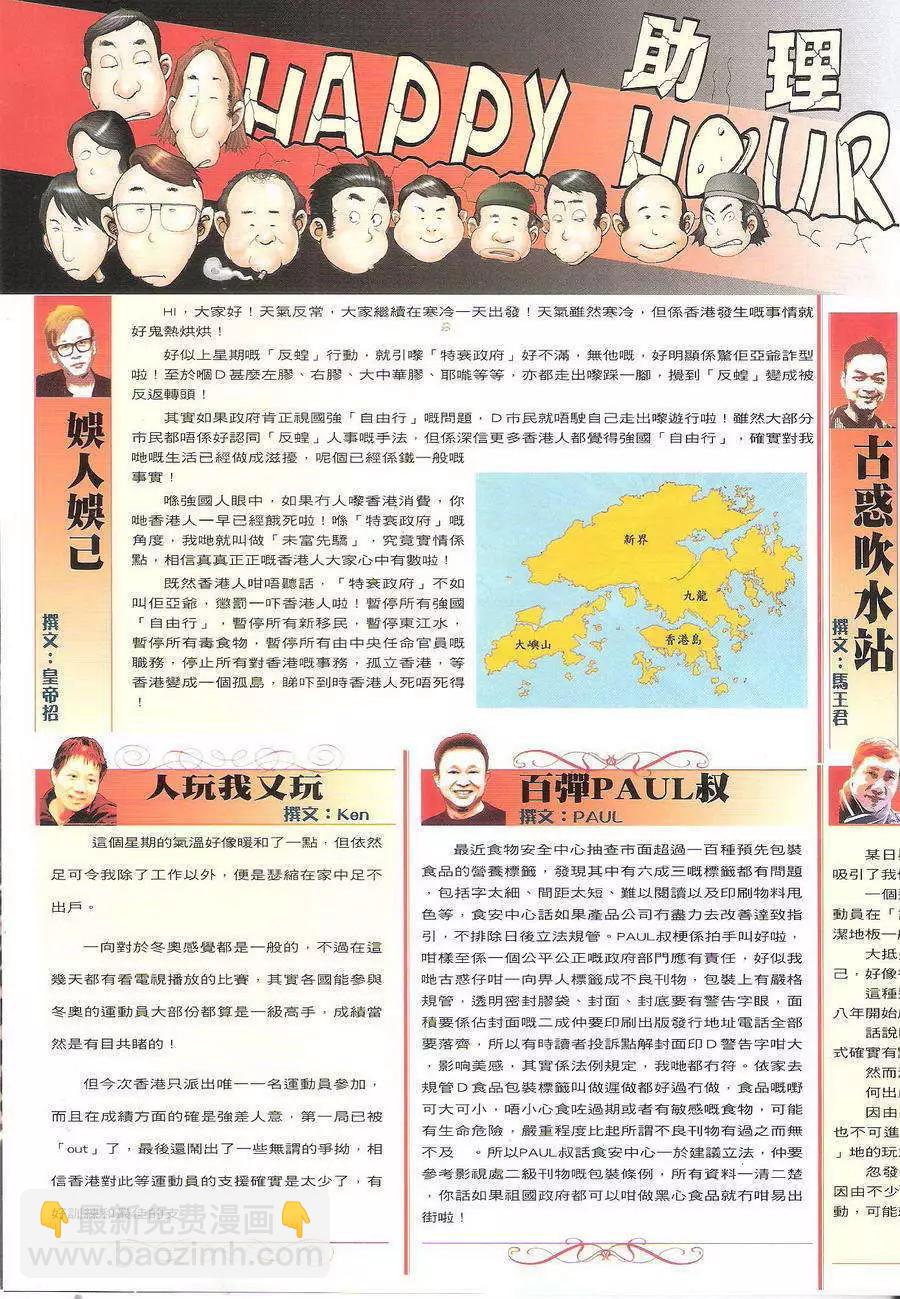 HAPPY 助理
HOUR
娛人娛己
撰文：皇帝招
HI，大家好！天氣反常，大家繼續在寒冷一天出發！天氣雖然寒冷，但係香港發生嘅事情就
好鬼熱烘烘！
好似上星期嘅「反蝗」行動，就引嚟「特衰政府」好不滿，無他嘅，好明顯係驚佢亞爺詐型
啦！至於嗰Ｄ甚麼左膠、右膠、大中華膠、耶嚨等等，亦都走出嚟踩一腳，攪到「反蝗」變成被
反返轉頭！
其實如果政府肯正視國強「自由行」嘅問題，Ｄ市民就唔駛自己走出嚟遊行啦！雖然大部分
市民都唔係好認同「反蝗」人事嘅手法，但係深信更多香港人都覺得強國「自由行」，確實對我
哋嘅生活已經做成滋擾，呢個已經係鐵一般嘅
事實！
喺強國人眼中，如果冇人嚟香港消費，你
哋香港人一早已經餓死啦！喺「特衰政府」嘅
角度，我哋就叫做「未富先驕」，究竟實情係
點，相信真真正正嘅香港人大家心中有數啦！
既然香港人咁唔聽話，「特衰政府」不如
叫佢亞爺，懲罰一吓香港人啦！暫停所有強國
「自由行」，暫停所有新移民，暫停東江水，
暫停所有毒食物，暫停所有由中央任命官員嘅
職務，停止所有對香港嘅事務，孤立香港，等
香港變成一個孤島，睇吓到時香港人死唔死得
！
新界
九龍
大嶼山
香港島
古惑吹水站
撰文：馬王君
人玩我又玩
撰文：Ken
這個星期的氣溫好像暖和了一點，但依然
足可令我除了工作以外，便是瑟縮在家中足不
出戶。
一向對於冬奧感覺都是一般的，不過在這
幾天都有看電視播放的比賽，其實各國能參與
冬奧的運動員大部份都算是一級高手，成績當
然是有目共睹的！
但今次香港只派出唯一一名運動員參加，
而且在成績方面的確是強差人意，第一局已被
「out」了，最後還鬧出了一些無謂的爭拗，相
信香港對此等運動員的支援確實是太少了，有
好訓練和最佳的支
百彈PAUL叔
撰文：PAUL
最近食物安全中心抽查市面超過一百種預先包裝
食品的營養標籤，發現其中有六成三嘅標籤都有問題
，包括字太細、間距太短、難以閱讀以及印刷物料甩
色等，食安中心話如果產品公司冇盡力去改善達致指
引，不排除日後立法規管。PAUL叔梗係拍手叫好啦，
咁樣至係一個公平公正嘅政府部門應有責任，好似我
哋古惑仔咁一向畀人標籤成不良刊物，包裝上有嚴格
規管，透明密封膠袋、封面、封底要有警告字眼，面
積要係佔封面嘅二成仲要印刷出版發行地址電話全部
要落齊，所以有時讀者投訴點解封面印Ｄ警告字咁大
，影响美感，其實係法例規定，我哋都冇符。依家去
規管Ｄ食品包裝標籤叫做遲做都好過冇做，食品嘅嘢
可大可小，唔小心食咗過期或者有敏感嘅食物，可能
有生命危險，嚴重程度比起所謂不良刊物有過之而無
不及　。所以PAUL叔話食安中心一於建議立法，仲要
參考影視處二級刊物嘅包裝條例，所有資料一清二楚
，你話如果祖國政府都可以咁做黑心食品就冇咁易出
街啦！
某日
吸引了我
一個
動員在「
潔地板一
大抵
己，好像
這種
八年開始
話說
式確實有
然而
何出
因由
也不可進
」地的玩
忽發
因由不少
動，可能
最新免費漫畫
www.baozimh.com